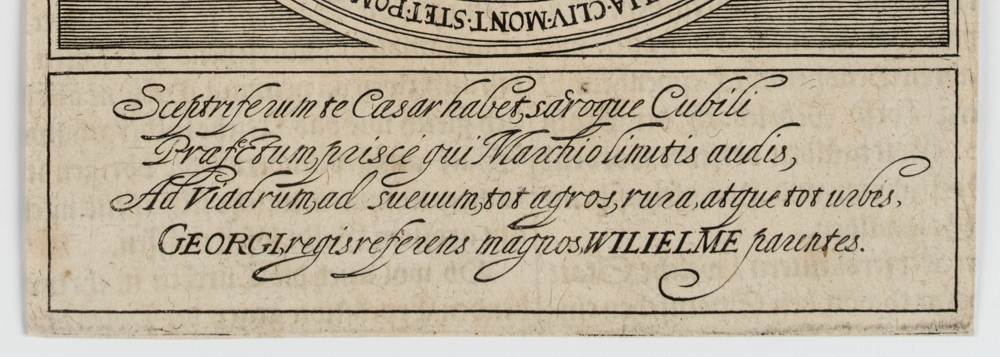 IA·CLIV·MONT·STET·POM
Sceptriferum te Cæsar habet, sacroque Cubili
Præfectum, prisce qui Marchio limitis audis,
Ad Viadrum, ad sueuum, tot agros, rura, atque tot urbes,
GEORGI, regis referens magnos, WILIELME parentes.